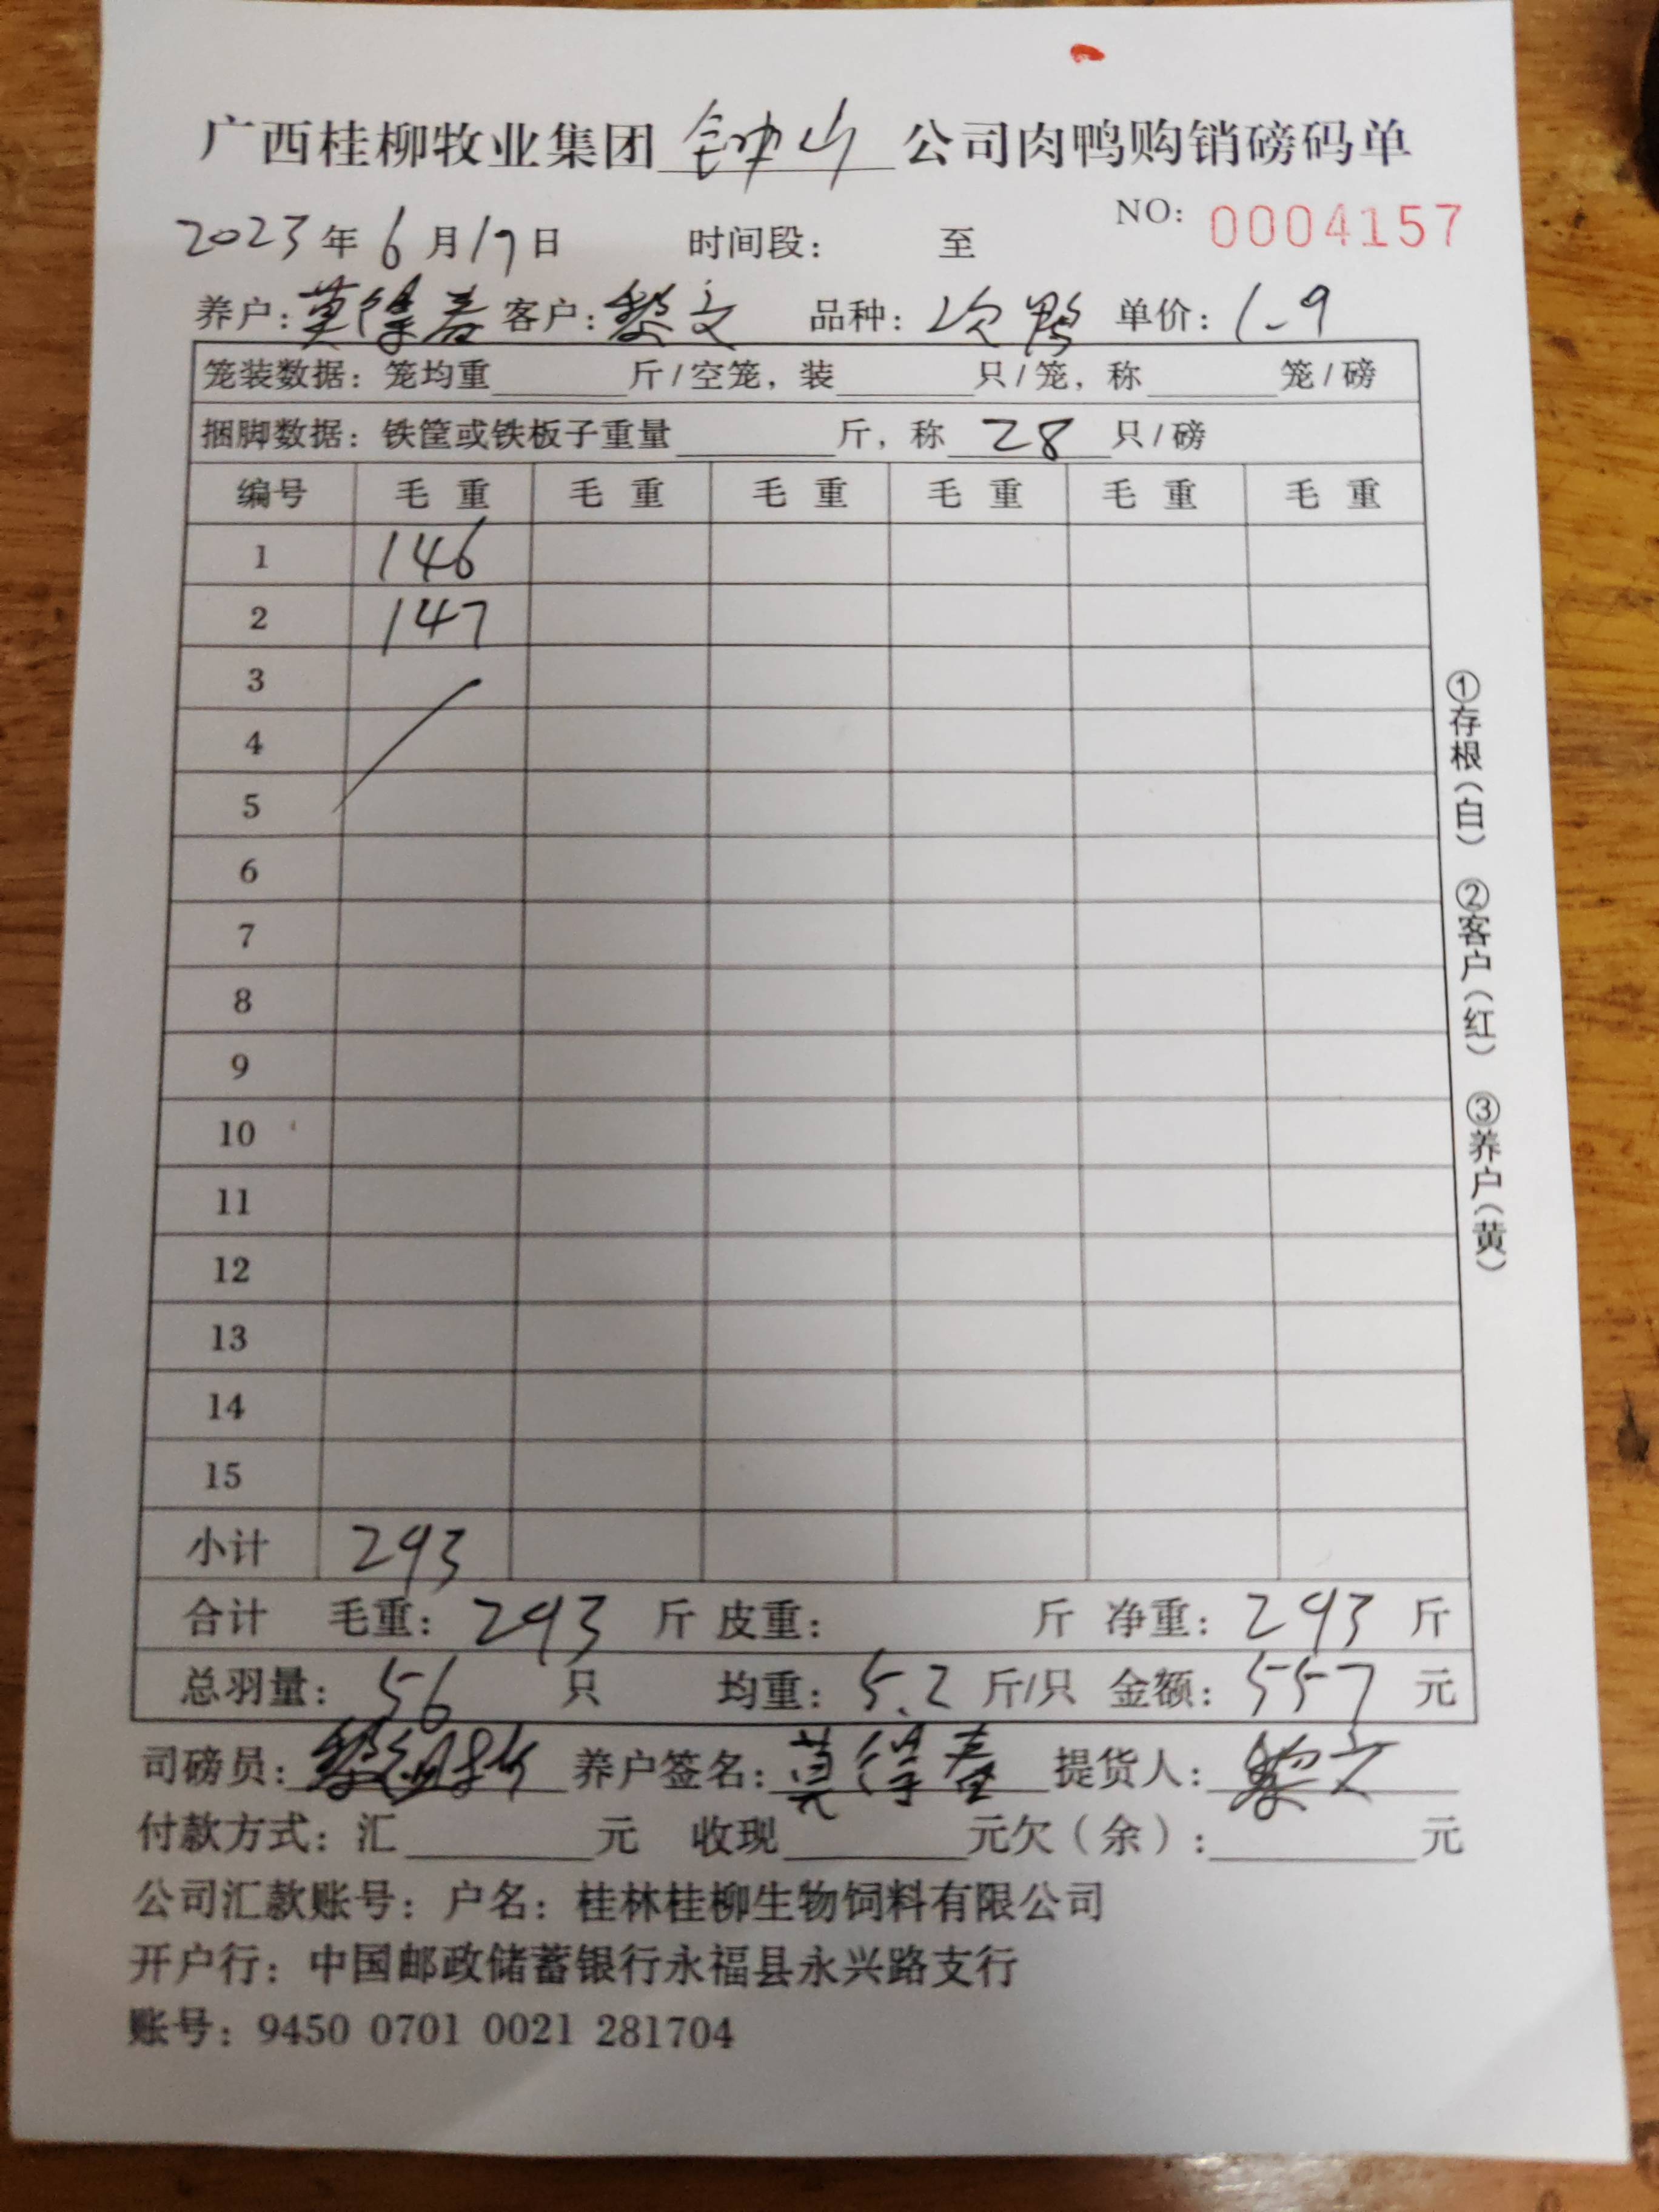 广西桂柳牧业集团 钟山 公司肉鸭购销磅码单
NO: 0004157
2023年6月19日 时间段: 至
养户: 莫德春 客户: 黎文 品种: 次鸭 单价: 1.9
笼装数据: 笼均重 斤/空笼, 装 只/笼, 称 笼/磅
捆脚数据: 铁筐或铁板子重量 斤, 称 28 只/磅
编号 毛重 毛重 毛重 毛重 毛重 毛重
1 146
2 147
3
4
5
6
7
8
9
10
11
12
13
14
15
小计 293
合计 毛重: 293 斤 皮重: 斤 净重: 293 斤
总羽量: 56 只 均重: 5.2 斤/只 金额: 557 元
司磅员: 养户签名: 莫德春 提货人: 黎文
付款方式: 汇 元 收现 元欠(余): 元
公司汇款账号: 户名: 桂林桂柳生物饲料有限公司
开户行: 中国邮政储蓄银行永福县永兴路支行
账号: 9450 0701 0021 281704
①存根(白) ②客户(红) ③养户(黄)